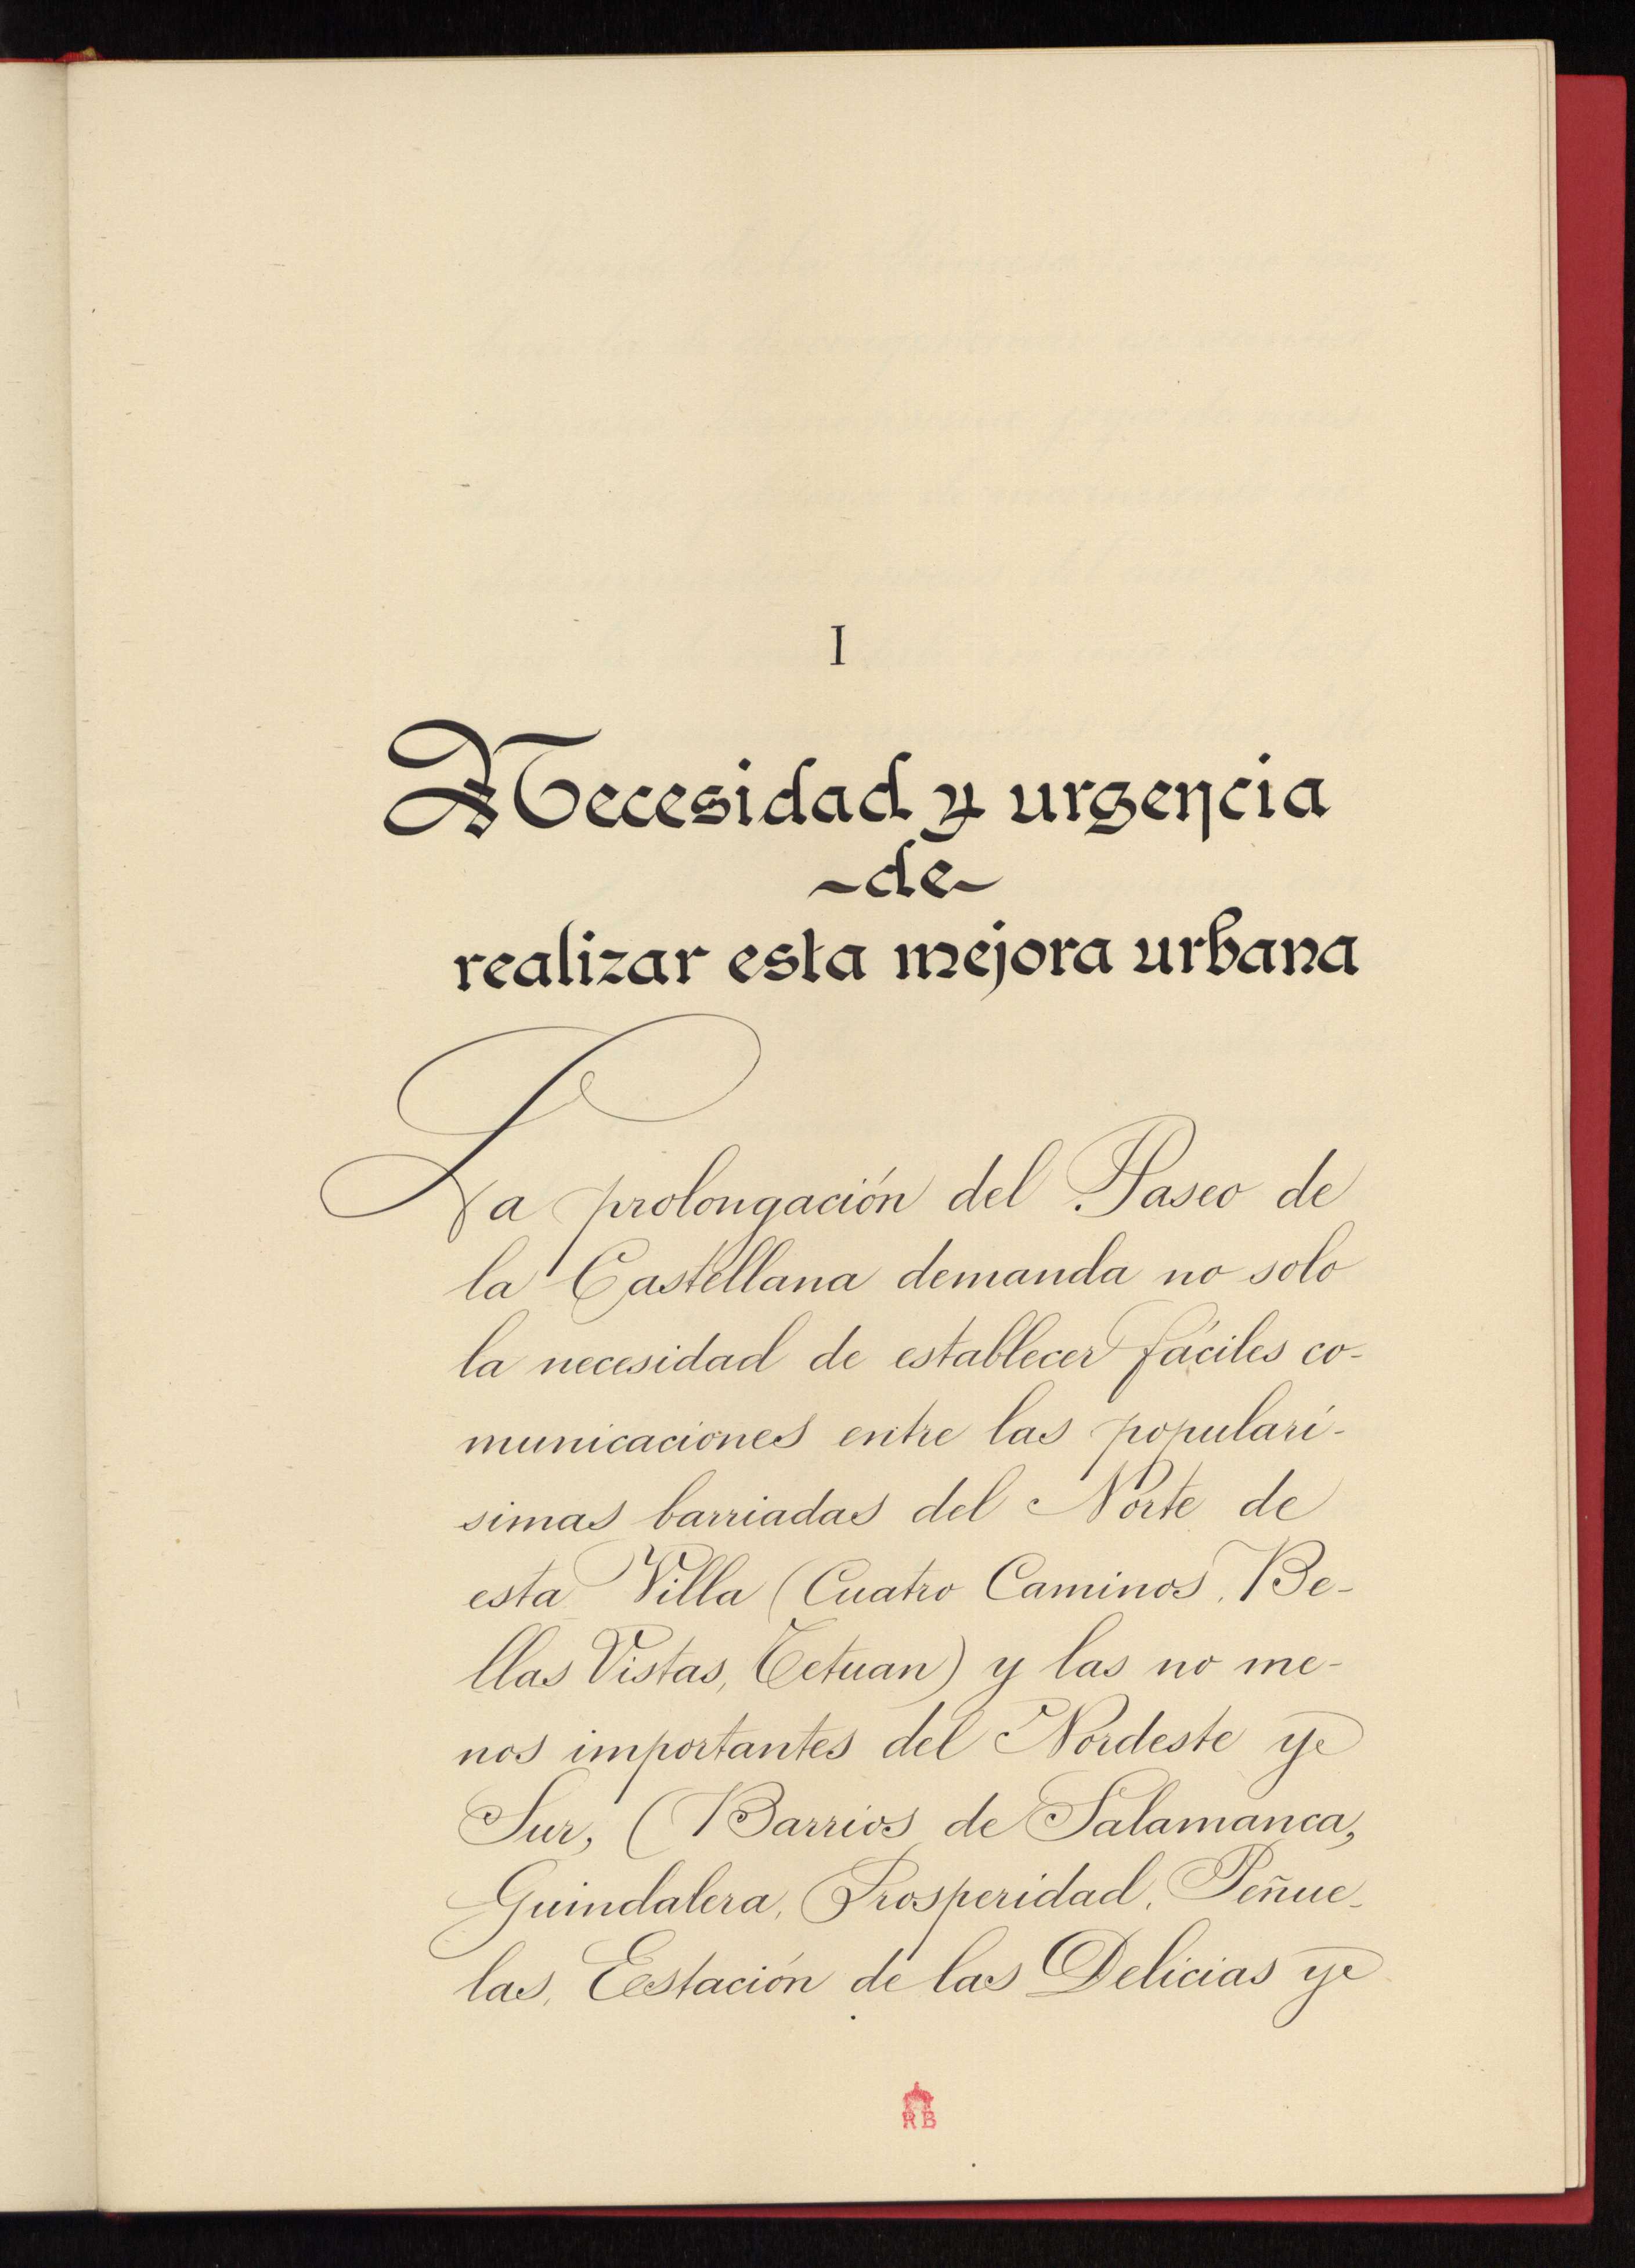 I
Necesidad y urgencia
~de~
realizar esta mejora urbana
La prolongación del Paseo de
la Castellana demanda no solo
la necesidad de establecer fáciles co-
municaciones entre las popularí-
simas barriadas del Norte de
esta Villa (Cuatro Caminos, Be-
llas Vistas, Tetuan) y las no me-
nos importantes del Nordeste y
Sur, (Barrios de Salamanca,
Guindalera, Prosperidad, Peñue-
las, Estación de las Delicias y
RB